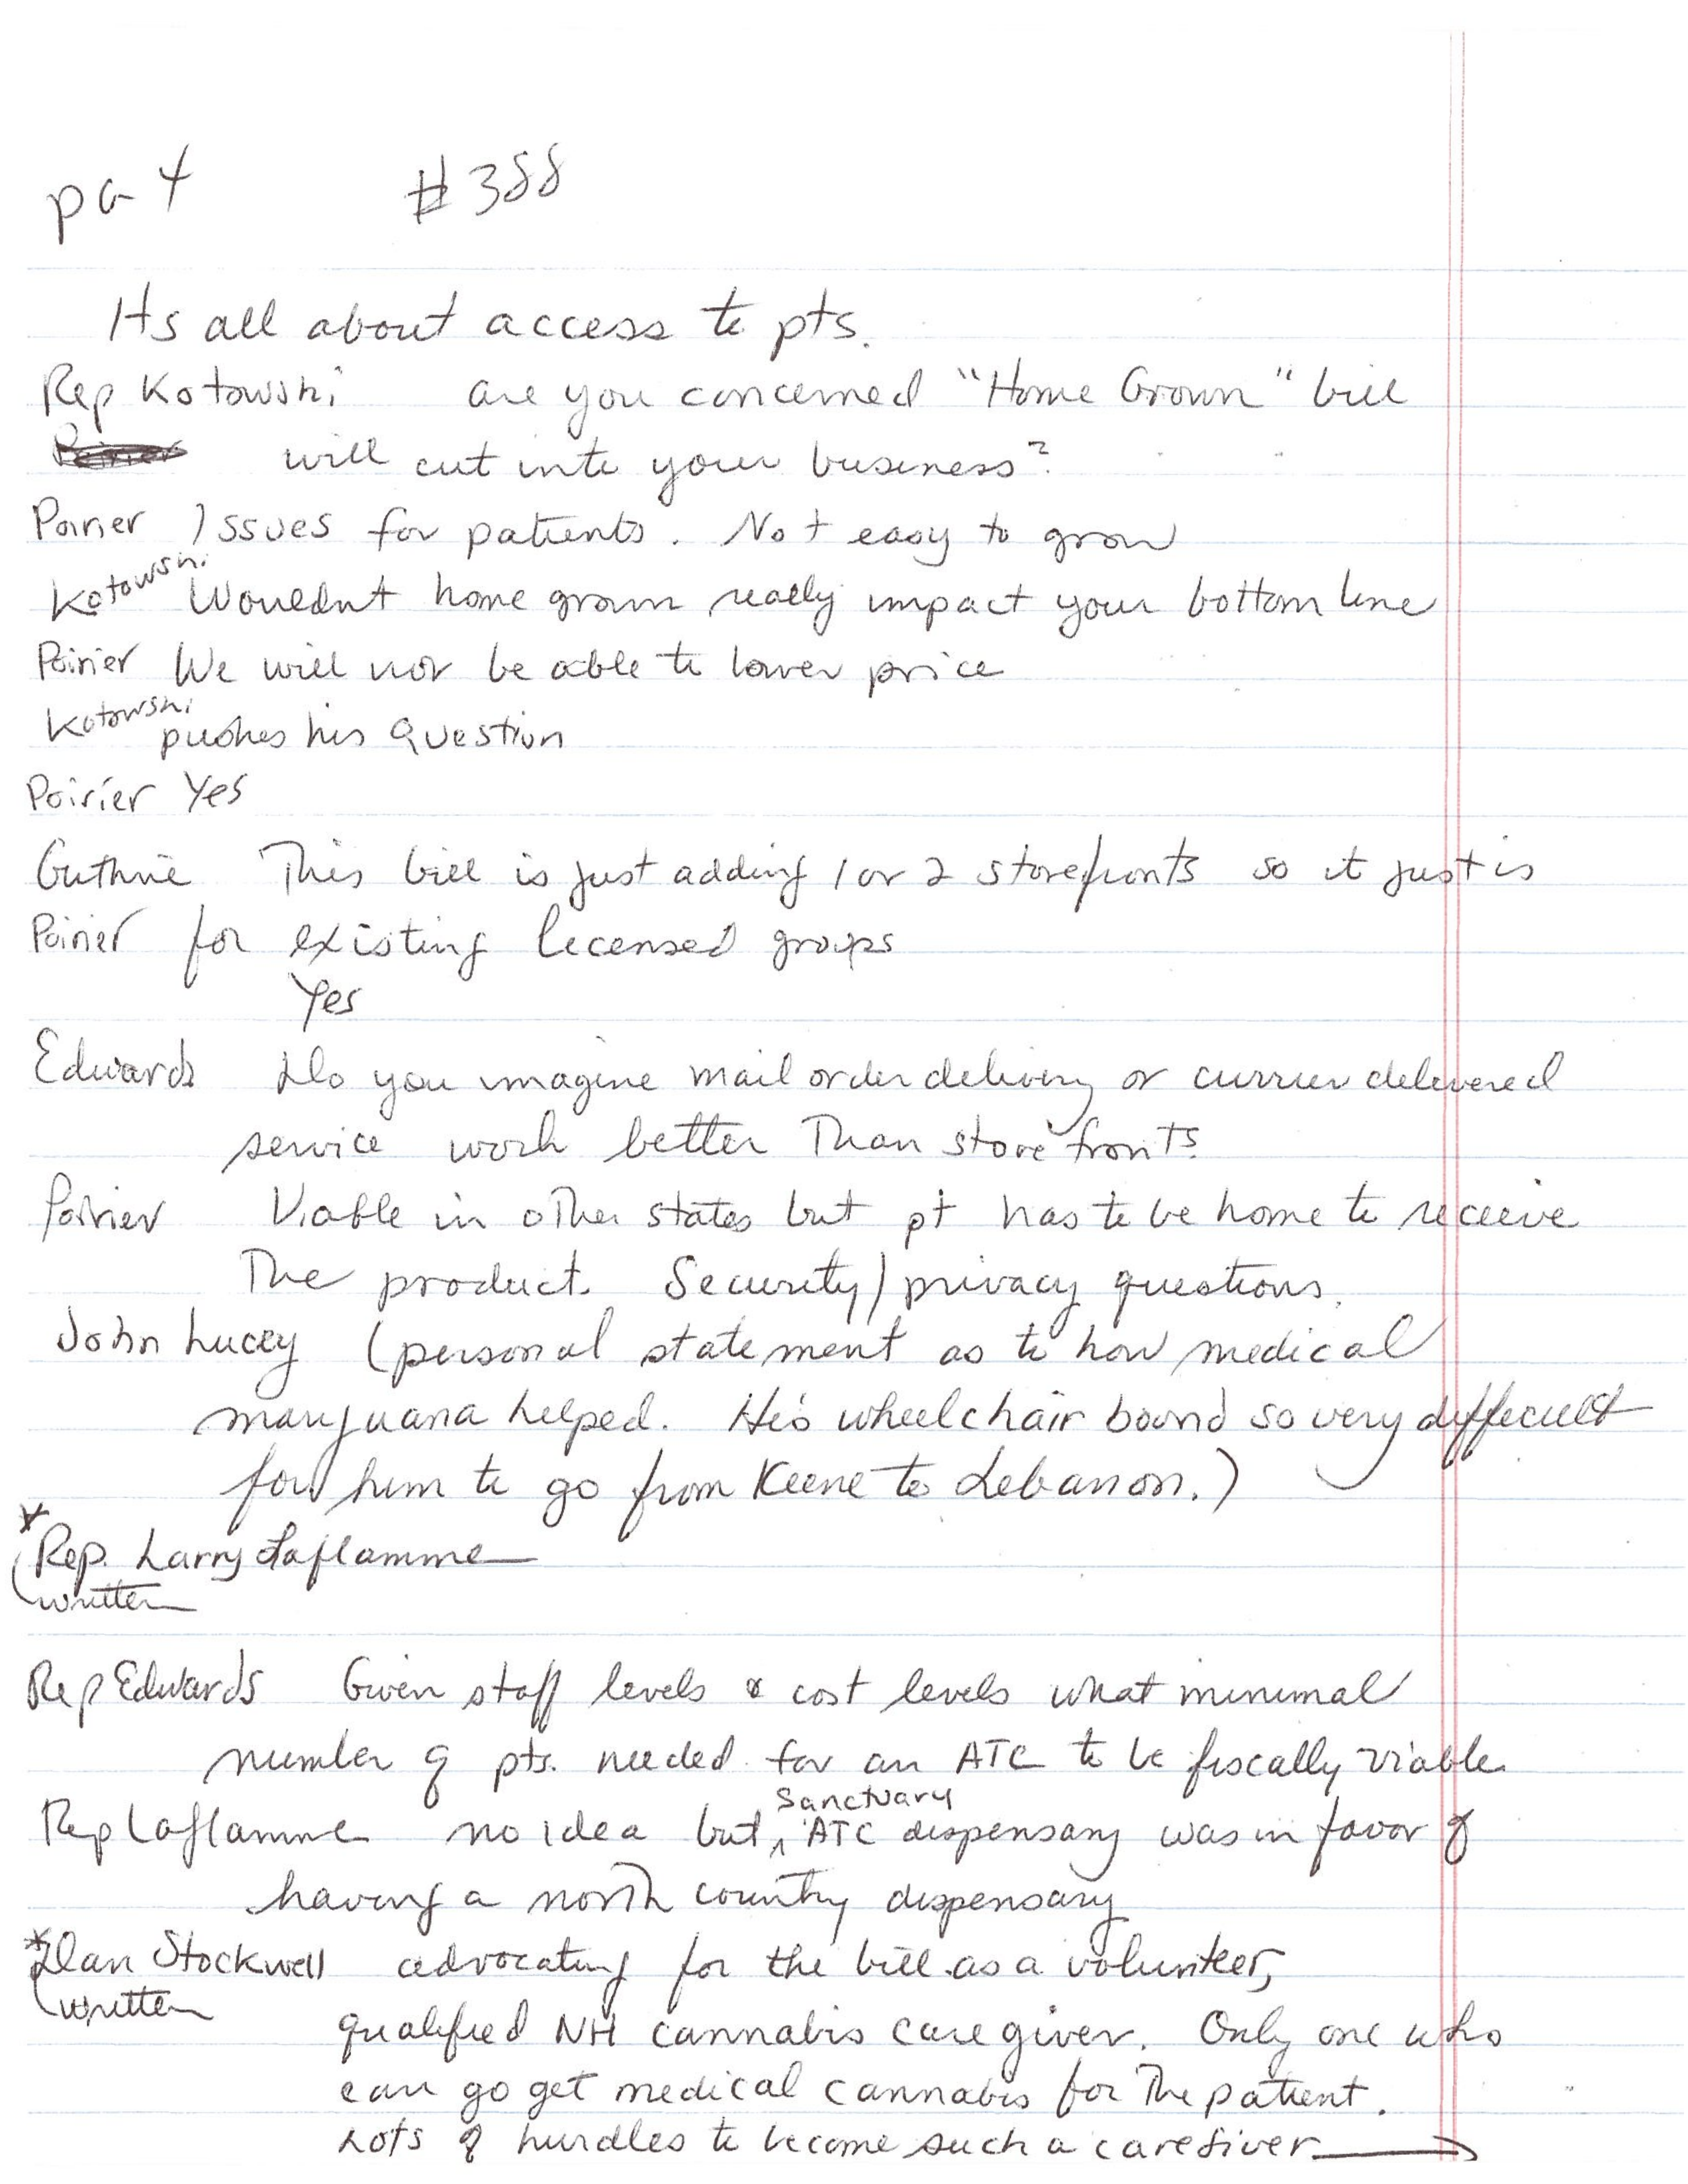 pg 4 #388
Its all about access to pts.
Rep Kotowski are you concerned "Home Grown" bill
will cut into your business?
Poirier Issues for patients. Not easy to grow
Kotowski Wouldnt home grown really impact your bottom line
Poirier We will not be able to lower price
Kotowski pushes his question
Poirier Yes
Guthrie This bill is just adding 1 or 2 storefronts so it just is
Poirier for existing licensed groups
Yes
Edwards Do you imagine mail order delivery or currier delivered
service work better Than store fronts
Poirier Viable in other states but pt has to be home to receive
The product. Security/privacy questions.
John Lucey (personal statement as to how medical
marijuana helped. He's wheelchair bound so very difficult
for him to go from Keene to Lebanon.)
* Rep. Larry Laflamme
written
Rep Edwards Given staff levels & cost levels what minimal
number of pts. needed for an ATC to be fiscally viable.
Sanctuary
Rep Laflamme no idea but ^ ATC dispensary was in favor of
having a north country dispensary
* Dan Stockwell advocating for the bill as a volunteer,
written
qualified NH cannabis caregiver. Only one who
can go get medical cannabis for The patient.
Lots of hurdles to become such a caregiver →